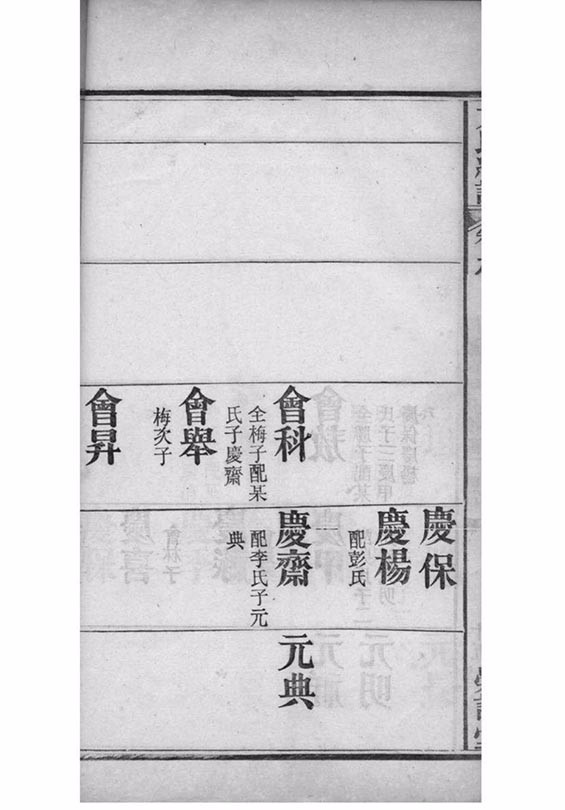 慶保
慶楊
配彭氏
會科
全梅子配某
氏子慶齋
慶齋
配李氏子元
典
元典
會舉
梅次子
會昇